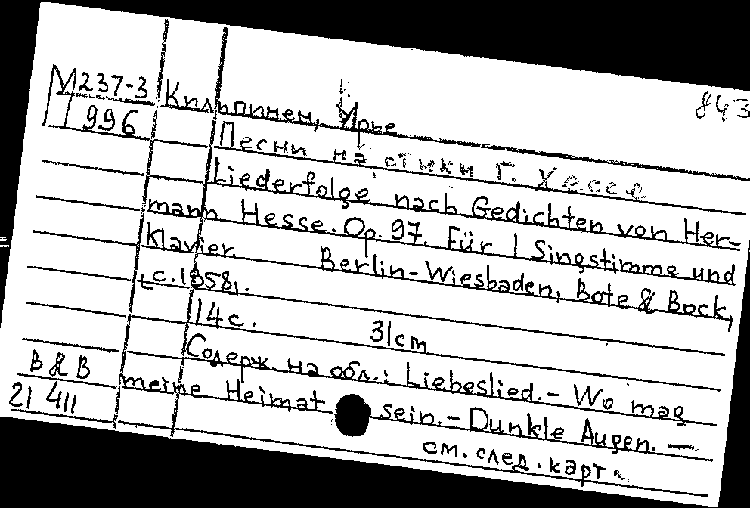 843
М237-3 Кильпинен, Урье
996 Песни на стихи Г. Хессе
Liederfolge nach Gedichten von Her-
mann Hesse. Op. 97. Für 1 Singstimme und
Klavier. Berlin-Wiesbaden, Bote & Bock,
[c. 1958].
14 с. 31 cm
Содерж. на обл.: Liebeslied. – Wo mag
B & B meine Heimat sein. – Dunkle Augen. –
21 411 см. след. карт.